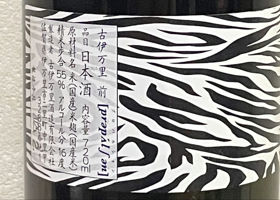 古伊万里 前 [prəpɛ́ʃənt]
品目 日本酒 内容量 720ml
原材料名 米(国産)米麹(国産米)
精米歩合 55% アルコール分 16度
製造者 古伊万里酒造有限会社